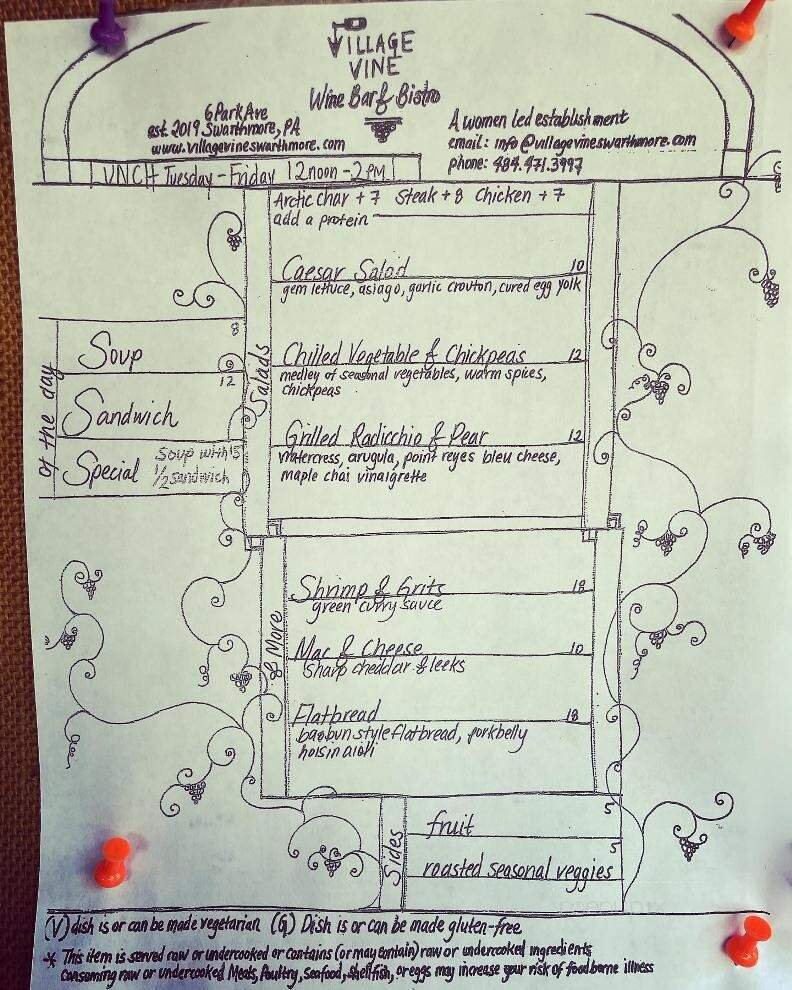 VILLAGE
VINE
Wine Bar & Bistro
6 Park Ave
est. 2019 Swarthmore, PA
www.villagevineswarthmore.com
A women led establishment
email: info@villagevineswarthmore.com
phone: 484.471.3997
LUNCH Tuesday - Friday 12noon - 2PM
Arctic char + 7 Steak + 8 Chicken + 7
add a protein
Salads
Caesar Salad 10
gem lettuce, asiago, garlic crouton, cured egg yolk
Chilled Vegetable & Chickpeas 12
medley of seasonal vegetables, warm spices,
chickpeas
Grilled Radicchio & Pear 12
watercress, arugula, point reyes bleu cheese,
maple chai vinaigrette
of the day
Soup 8
Sandwich 12
Special Soup with 15
1/2 sandwich
& More
Shrimp & Grits 18
green curry sauce
Mac & Cheese 10
Sharp cheddar & leeks
Flatbread 18
baobun style flatbread, porkbelly
hoisin aioli
Sides
fruit 5
roasted seasonal veggies 5
(V) dish is or can be made vegetarian (G) Dish is or can be made gluten-free
* This item is served raw or undercooked or contains (or may contain) raw or undercooked ingredients
Consuming raw or undercooked Meats, Poultry, Seafood, Shellfish, or eggs may increase your risk of foodborne illness